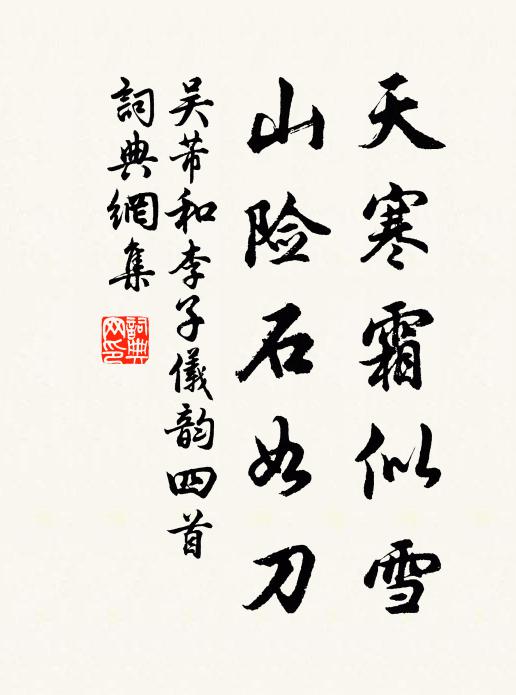 天寒霜似雪
山险石如刀
吴芾和李子儀韵四首
詞典網集
詞典
网印